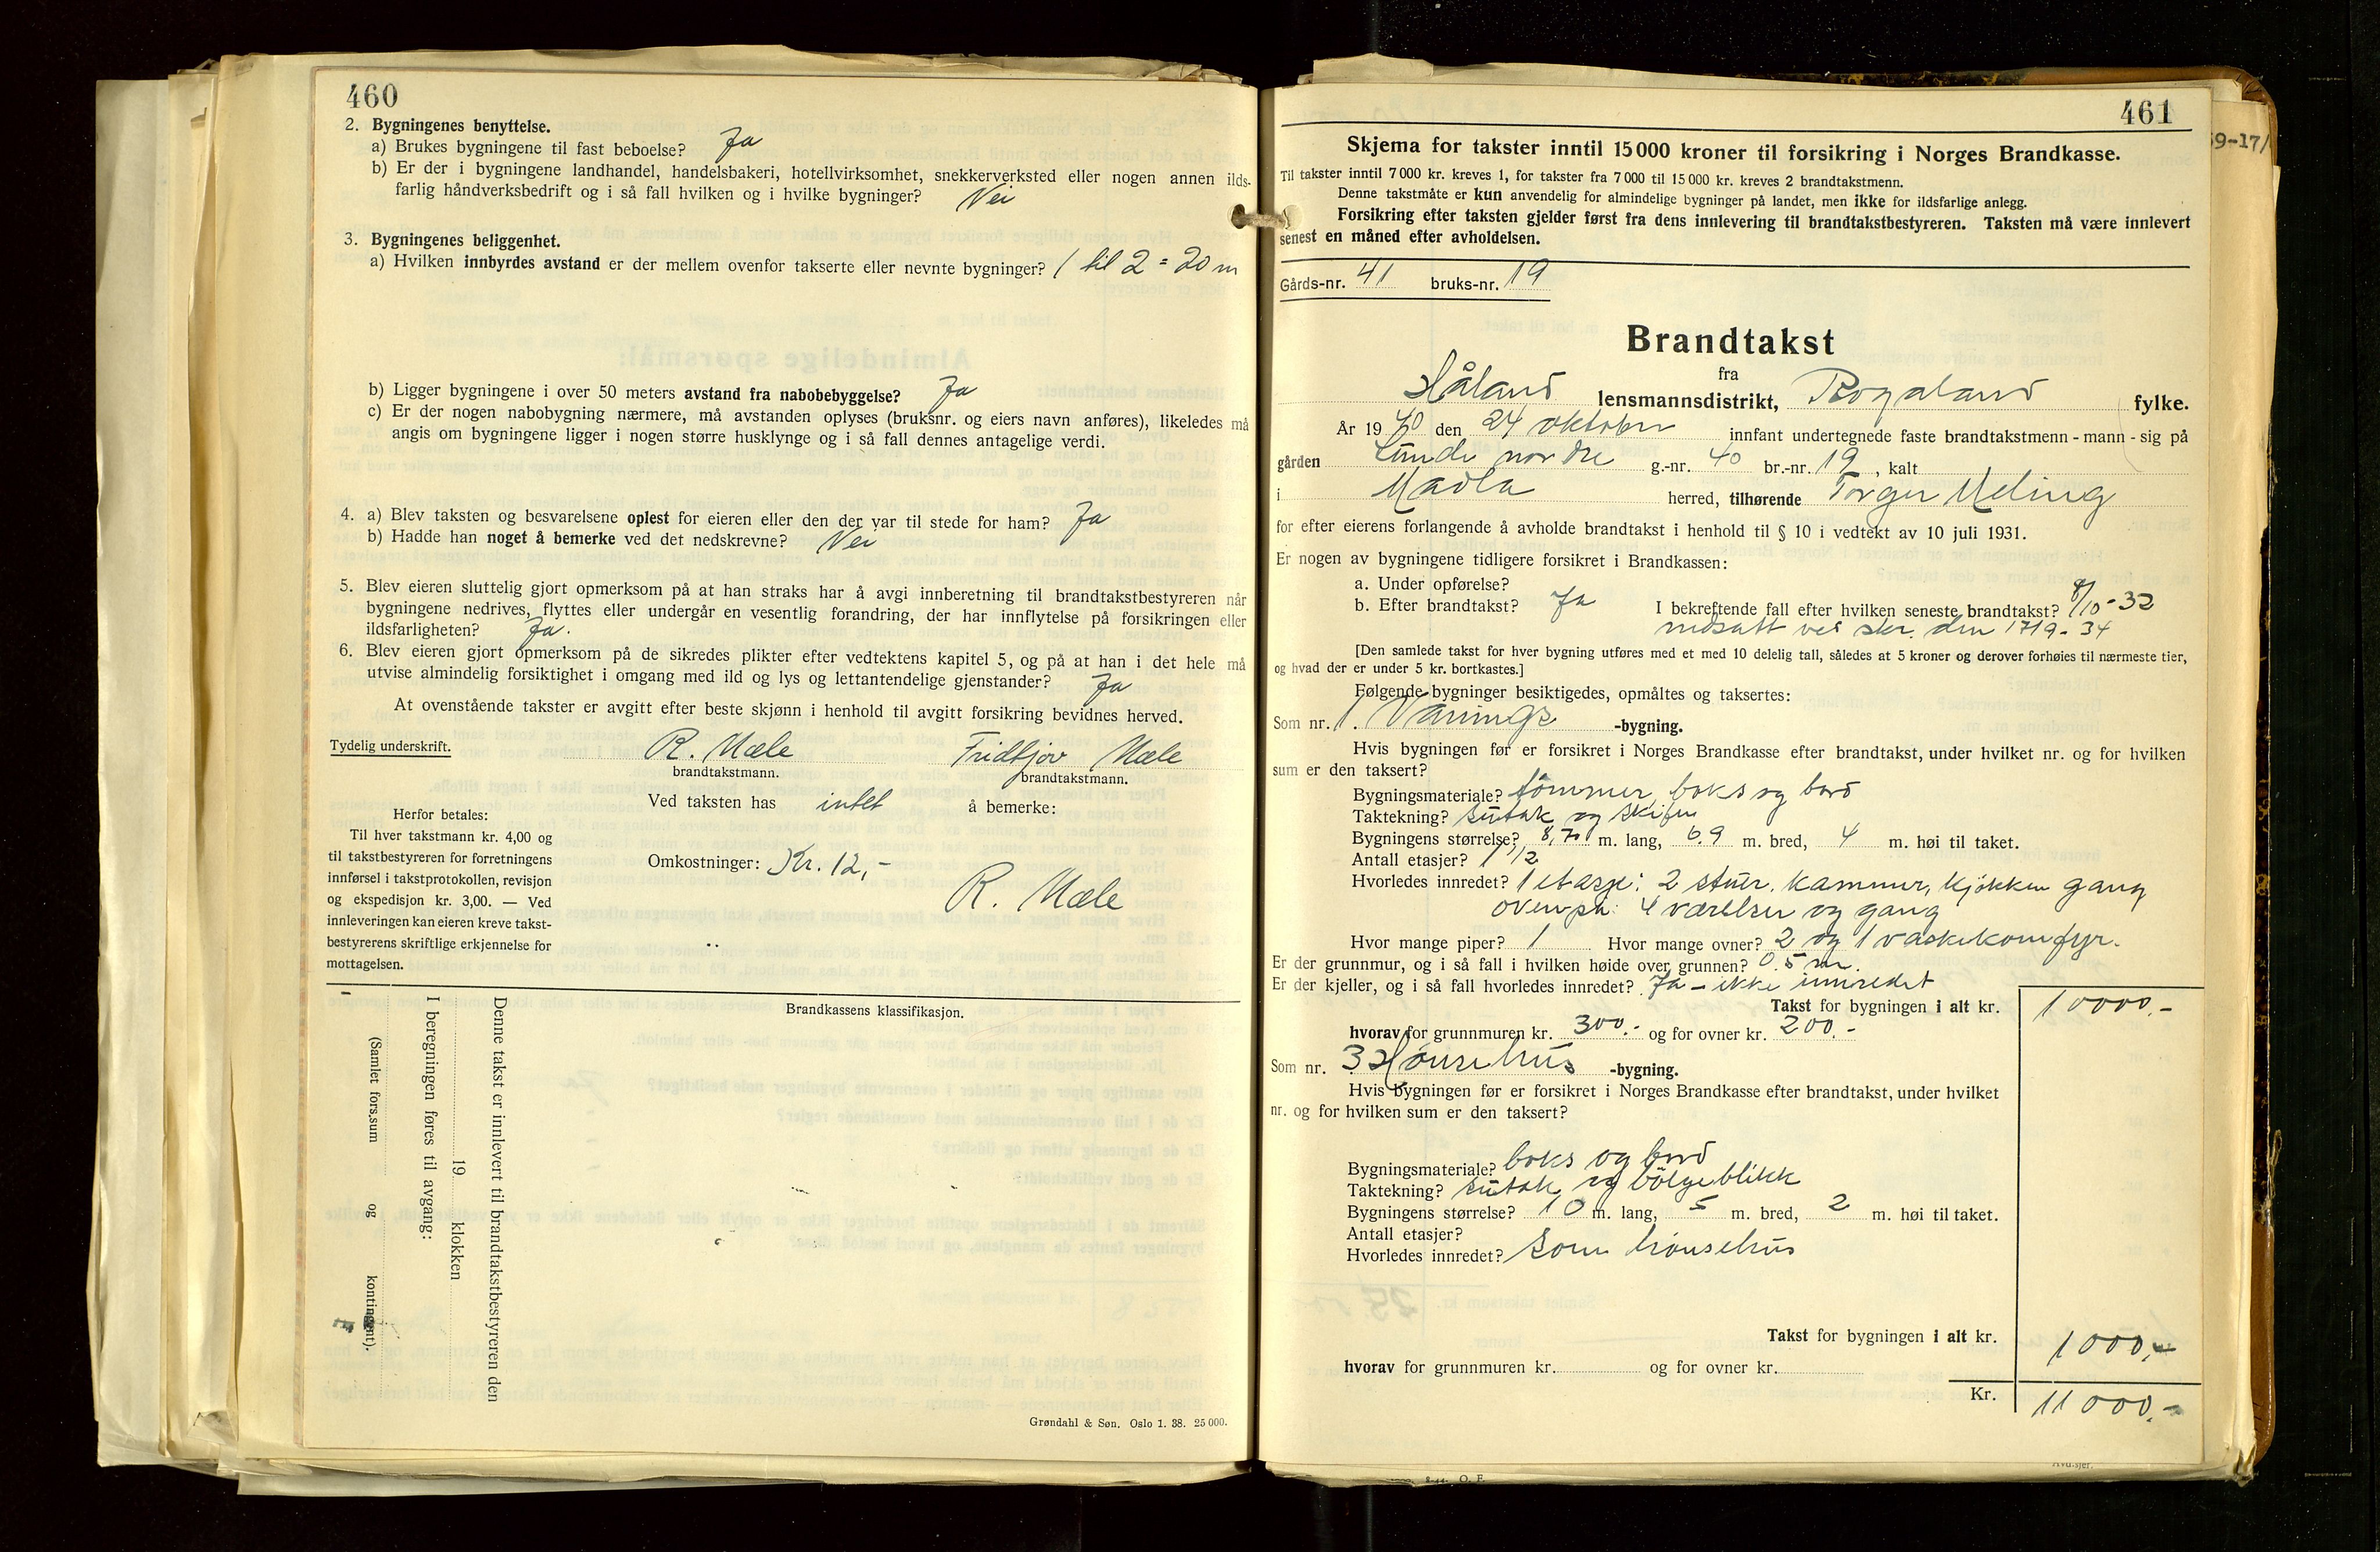 460
2. Bygningenes benyttelse.
a) Brukes bygningene til fast beboelse? Ja
b) Er der i bygningene landhandel, handelsbakeri, hotellvirksomhet, snekkerverksted eller nogen annen ilds-
farlig håndverksbedrift og i så fall hvilken og i hvilke bygninger? Nei
3. Bygningenes beliggenhet.
a) Hvilken innbyrdes avstand er der mellem ovenfor takserte eller nevnte bygninger? 1 til 2 = 20 m
b) Ligger bygningene i over 50 meters avstand fra nabobebyggelse? Ja
c) Er der nogen nabobygning nærmere, må avstanden oplyses (bruksnr. og eiers navn anføres), likeledes må
angis om bygningene ligger i nogen større husklynge og i så fall dennes antagelige verdi.
4. a) Blev taksten og besvarelsene oplest for eieren eller den der var til stede for ham? Ja
b) Hadde han noget å bemerke ved det nedskrevne? Nei
5. Blev eieren sluttelig gjort opmerksom på at han straks har å avgi innberetning til brandtakstbestyreren når
bygningene nedrives, flyttes eller undergår en vesentlig forandring, der har innflytelse på forsikringen eller
ildsfarligheten? Ja.
6. Blev eieren gjort opmerksom på de sikredes plikter efter vedtektens kapitel 5, og på at han i det hele må
utvise almindelig forsiktighet i omgang med ild og lys og lettantendelige gjenstander? Ja
At ovenstående takster er avgitt efter beste skjønn i henhold til avgitt forsikring bevidnes herved.
Tydelig underskrift. R. Mæle Fridtjov Mæle
brandtakstmann. brandtakstmann.
Ved taksten has intet å bemerke:
Herfor betales:
Til hver takstmann kr. 4,00 og
til takstbestyreren for forretningens
innførsel i takstprotokollen, revisjon
og ekspedisjon kr. 3,00. — Ved
innleveringen kan eieren kreve takst-
bestyrerens skriftlige erkjennelse for
mottagelsen.
Omkostninger: Kr. 12,-
R. Mæle
Brandkassens klassifikasjon.
Denne takst er innlevert til brandtakstbestyreren den
19 klokken
I beregningen føres til avgang:
(Samlet fors.sum og kontingent).
Grøndahl & Søn. Oslo 1. 38. 25 000.
461
59-17/
Skjema for takster inntil 15 000 kroner til forsikring i Norges Brandkasse.
Til takster inntil 7 000 kr. kreves 1, for takster fra 7 000 til 15 000 kr. kreves 2 brandtakstmenn.
Denne takstmåte er kun anvendelig for almindelige bygninger på landet, men ikke for ildsfarlige anlegg.
Forsikring efter taksten gjelder først fra dens innlevering til brandtakstbestyreren. Taksten må være innlevert
senest en måned efter avholdelsen.
Gårds-nr. 41 bruks-nr. 19
Brandtakst
fra
Håland lensmannsdistrikt, Rogaland fylke.
År 1940 den 24 oktober innfant undertegnede faste brandtakstmenn - mann - sig på
gården Lunde nordre g.-nr. 40 br.-nr. 19, kalt
i Madla herred, tilhørende Torger Meling
for efter eierens forlangende å avholde brandtakst i henhold til § 10 i vedtekt av 10 juli 1931.
Er nogen av bygningene tidligere forsikret i Brandkassen:
a. Under opførelse?
b. Efter brandtakst? Ja I bekreftende fall efter hvilken seneste brandtakst? 8/10-32
nedsatt ved skr. den 17/9-34
[Den samlede takst for hver bygning utføres med et med 10 delelig tall, således at 5 kroner og derover forhøies til nærmeste tier,
og hvad der er under 5 kr. bortkastes.]
Følgende bygninger besiktigedes, opmåltes og taksertes:
Som nr. 1. Vånings -bygning.
Hvis bygningen før er forsikret i Norges Brandkasse efter brandtakst, under hvilket nr. og for hvilken
sum er den taksert?
Bygningsmateriale? tømmer, boks og bord
Taktekning? sutak og skifer
Bygningens størrelse? 8,70 m. lang, 6.9 m. bred, 4 m. høi til taket.
Antall etasjer? 1 1/2
Hvorledes innredet? 1 etasje: 2 stuer, kammer, kjøkken gang
ovenpå: 4 værelser og gang
Hvor mange piper? 1 Hvor mange ovner? 2 og 1 vaskekomfyr.
Er der grunnmur, og i så fall i hvilken høide over grunnen? 0.5 m.
Er der kjeller, og i så fall hvorledes innredet? Ja - ikke innredet
Takst for bygningen i alt kr. 10000,-
hvorav for grunnmuren kr. 300.- og for ovner kr. 200.-
Som nr. 3 Hønsehus -bygning.
Hvis bygningen før er forsikret i Norges Brandkasse efter brandtakst, under hvilket
nr. og for hvilken sum er den taksert?
Bygningsmateriale? boks og bord
Taktekning? sutak og bølgeblikk
Bygningens størrelse? 10 m. lang, 5 m. bred, 2 m. høi til taket.
Antall etasjer?
Hvorledes innredet? som hønsehus
Takst for bygningen i alt kr. 1000,-
hvorav for grunnmuren kr. og for ovner kr.
Kr. 11000,-